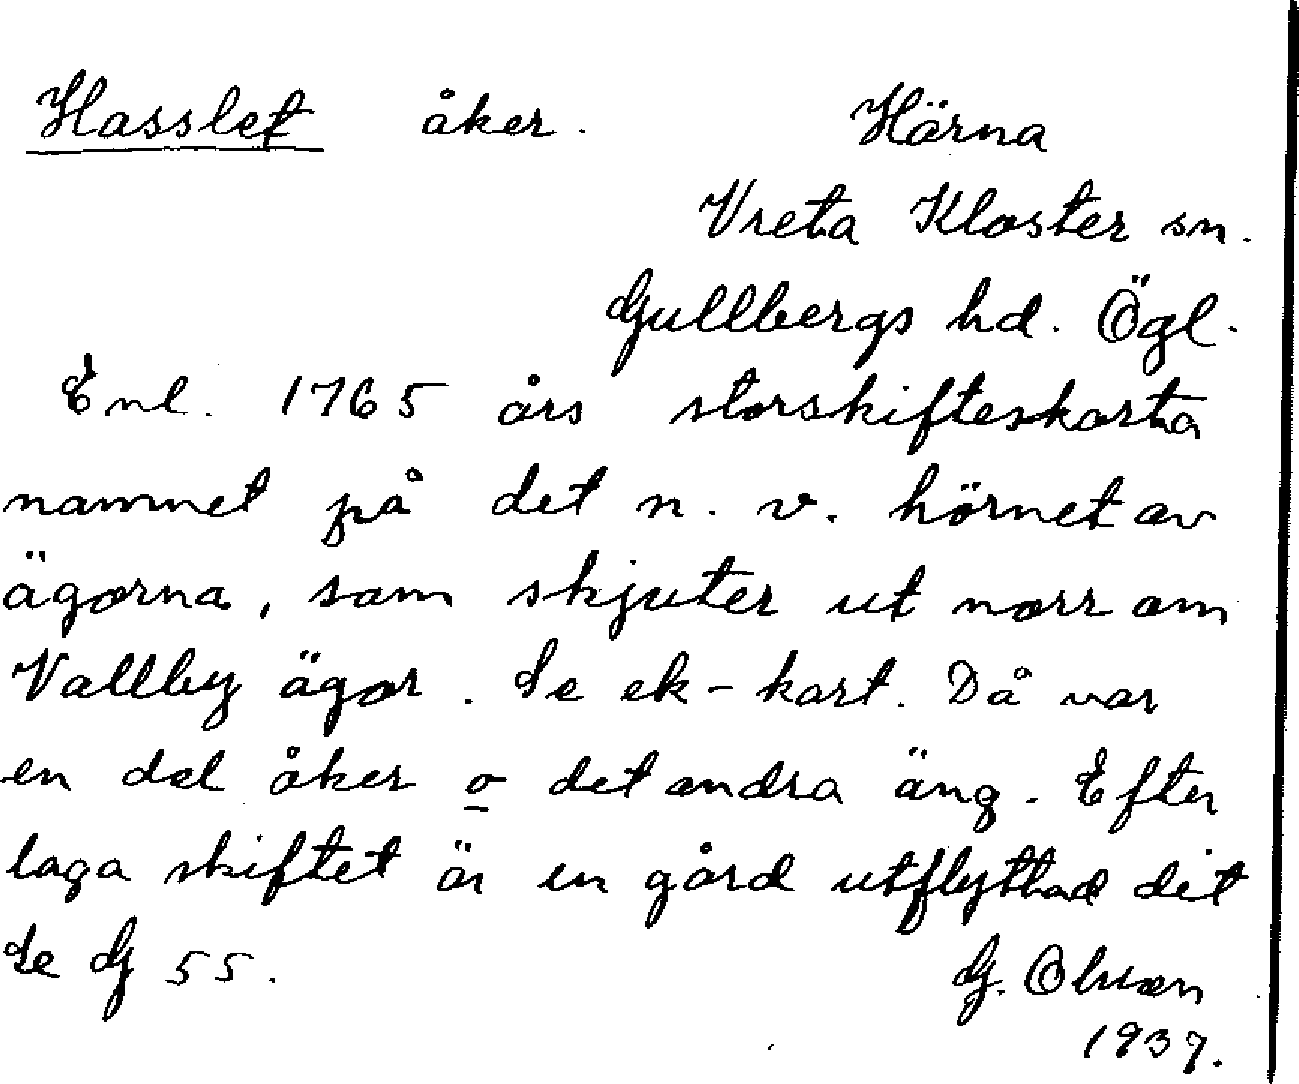 Hasslet åker. Härna
Vreta Kloster sn.
Gullbergs hd. Ögl.
Enl. 1765 års storskifteskarta
namnet på det n. v. hörnet av
ägorna, som skjuter ut norr om
Vallby ägor. Se ek-kart. Då var
en del åker o det andra äng. Efter
laga skiftet är en gård utflyttad dit
Se G 55.
G. Olsson
1937.